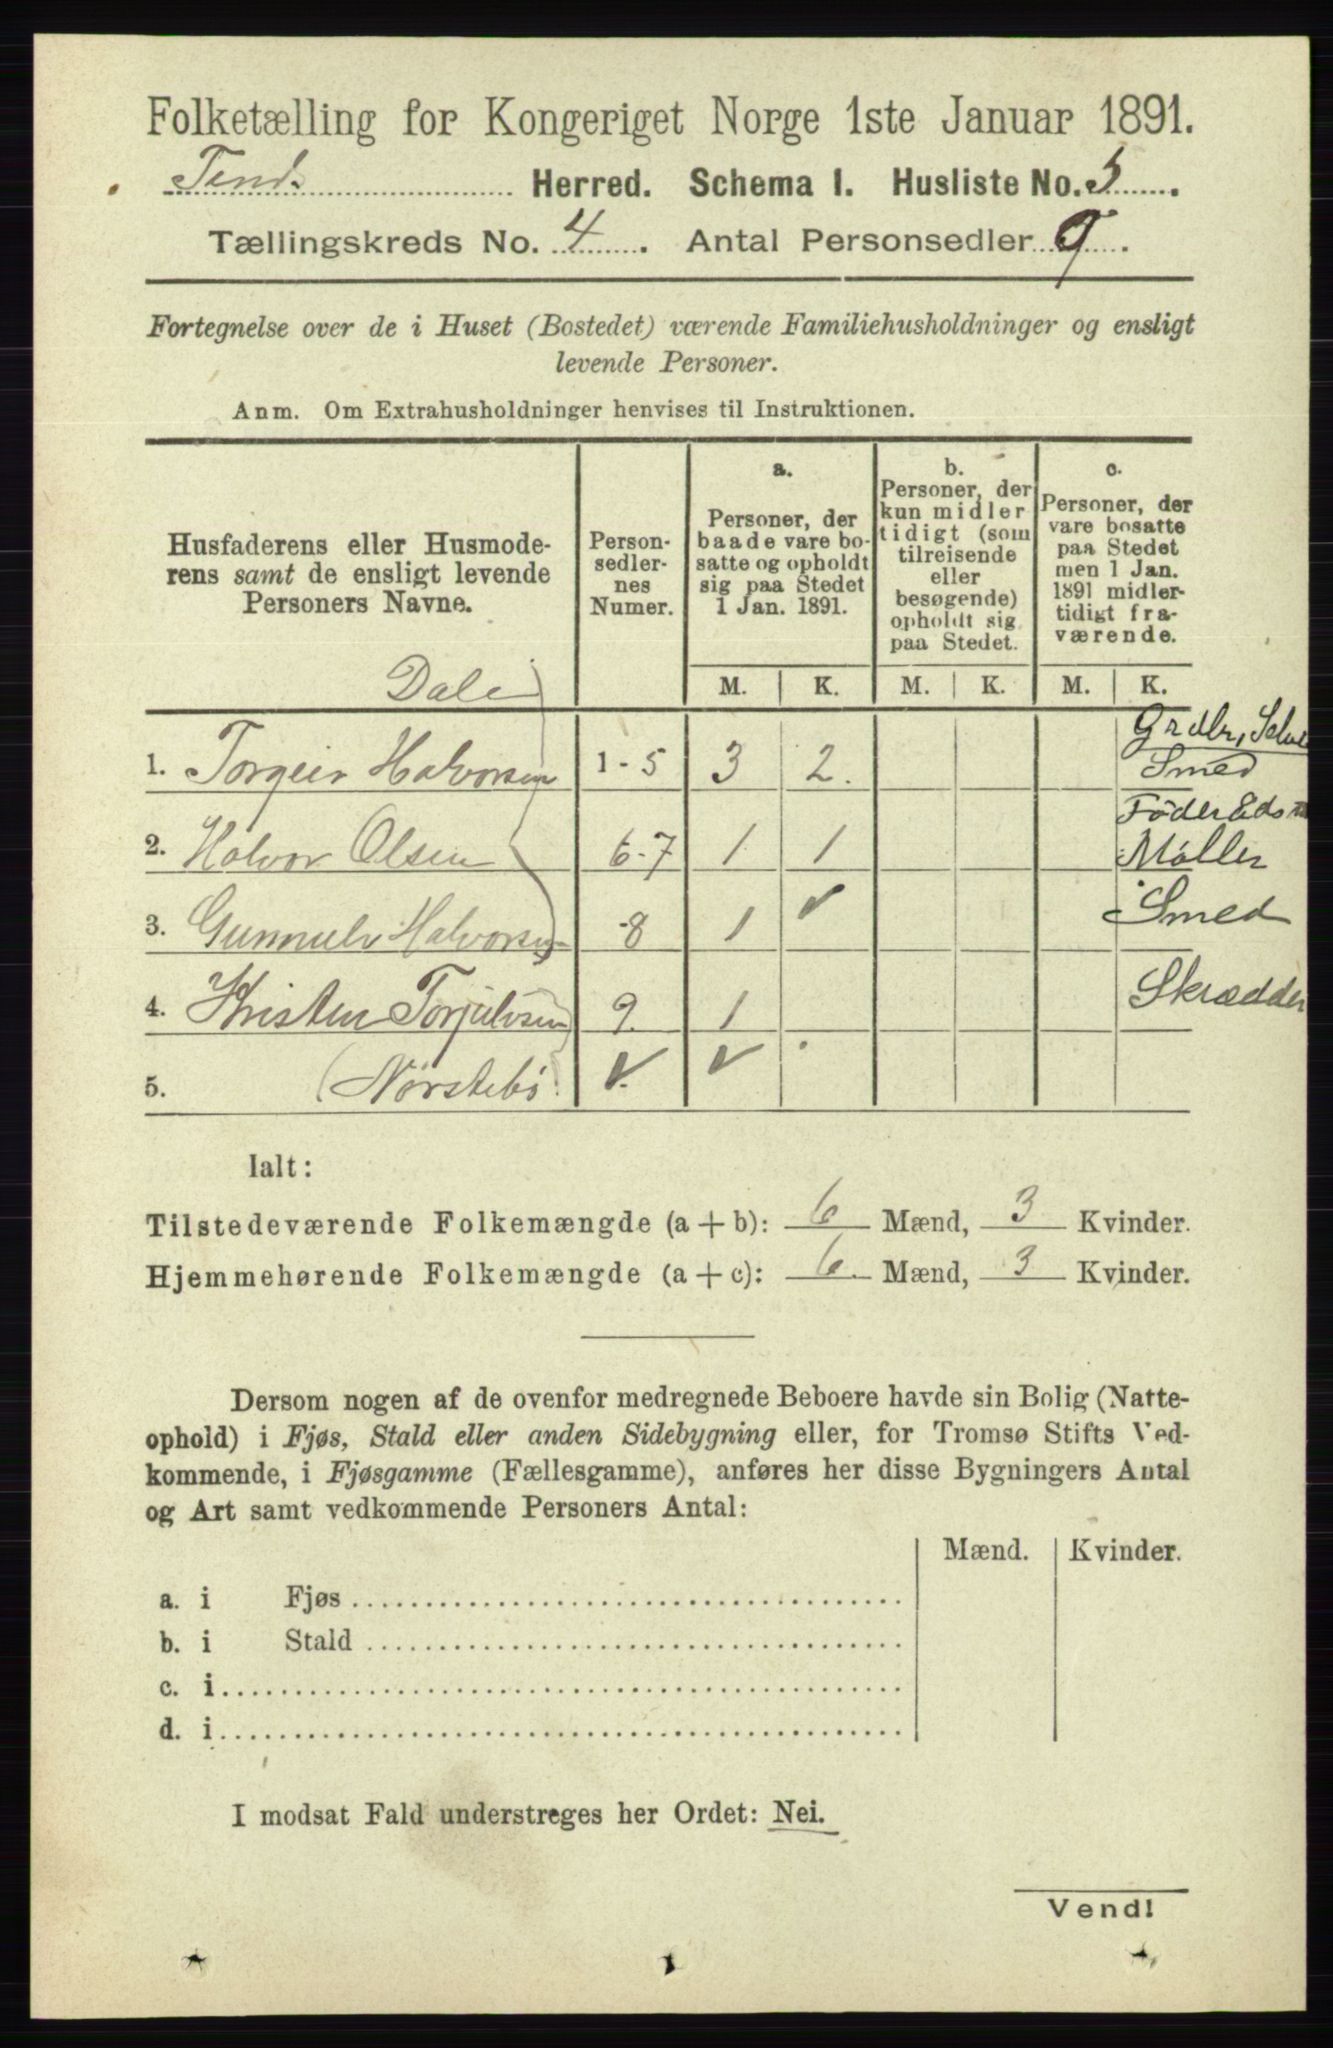 Folketælling for Kongeriget Norge 1ste Januar 1891.
Tind. Herred. Schema I. Husliste No. 3.
Tællingskreds No. 4. Antal Personsedler 9.
Fortegnelse over de i Huset (Bostedet) værende Familiehusholdninger og ensligt
levende Personer.
Anm. Om Extrahusholdninger henvises til Instruktionen.
Husfaderens eller Husmode-
rens samt de ensligt levende
Personers Navne.
Person-
sedler-
nes
Numer.
a.
Personer, der
baade vare bo-
satte og opholdt
sig paa Stedet
1 Jan. 1891.
b.
Personer, der
kun midler
tidigt (som
tilreisende
eller
besøgende)
opholdt sig
paa Stedet.
c.
Personer, der
vare bosatte
paa Stedet
men 1 Jan.
1891 midler-
tidigt fra-
værende.
Dale
M. K. M. K. M. K.
1. Torgeir Halvorsen 1-5 3 2. Grdbr, Selve
Smed
2. Halvor Olsen 6-7 1 1 Föderåds
Møller
3. Gunnulv Halvorsen -8 1 Smed
4. Kristen Torjulvsen 9. 1 Skrædder
5. (Nørstebø)
Ialt:
Tilstedeværende Folkemængde (a + b): 6 Mænd, 3 Kvinder.
Hjemmehørende Folkemængde (a + c): 6. Mænd, 3 Kvinder.
Dersom nogen af de ovenfor medregnede Beboere havde sin Bolig (Natte-
ophold) i Fjøs, Stald eller anden Sidebygning eller, for Tromsø Stifts Ved-
kommende, i Fjøsgamme (Fællesgamme), anføres her disse Bygningers Antal
og Art samt vedkommende Personers Antal:
Mænd. Kvinder.
a. i Fjøs
b. i Stald
c. i
d. i
I modsat Fald understreges her Ordet: Nei.
Vend!